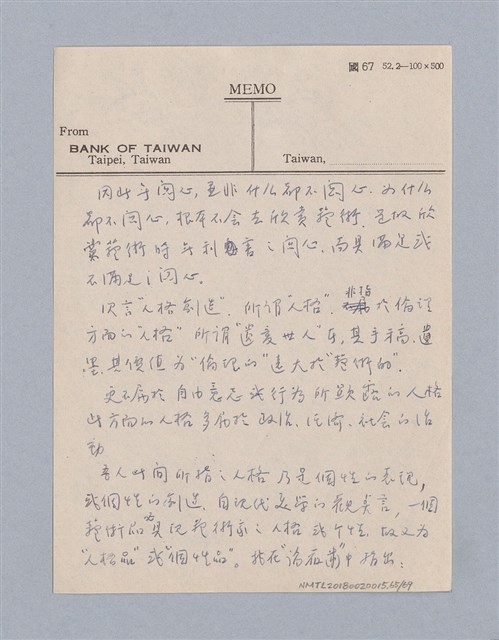 國 67 52. 2—100×500
MEMO
From
BANK OF TAIWAN
Taipei, Taiwan
Taiwan,
因此無関心，並非什么都不関心．为什么
都不関心，根本不会去欣賞藝術．是故欣
賞藝術時無利害之関心，而具滿足或
不滿足之関心．
次言"人格創造"．所謂"人格"，非指於倫理
方面的"人格" 所謂"遺愛世人"
墨，其價值为"倫理的"遠大於"藝術的"．
更不属於自由意志或行為所顕露的人格
此方面的人格多属於政治、経済、社会的活
動
吾人此間所指之人格乃是個性的表現，
或個性的創造．自現代美学的観点言，一個
藝術品为具現藝術家之人格或个性，故又为
"人格品"或"個性品"。 中指出：
NMTL20180020015,65/89